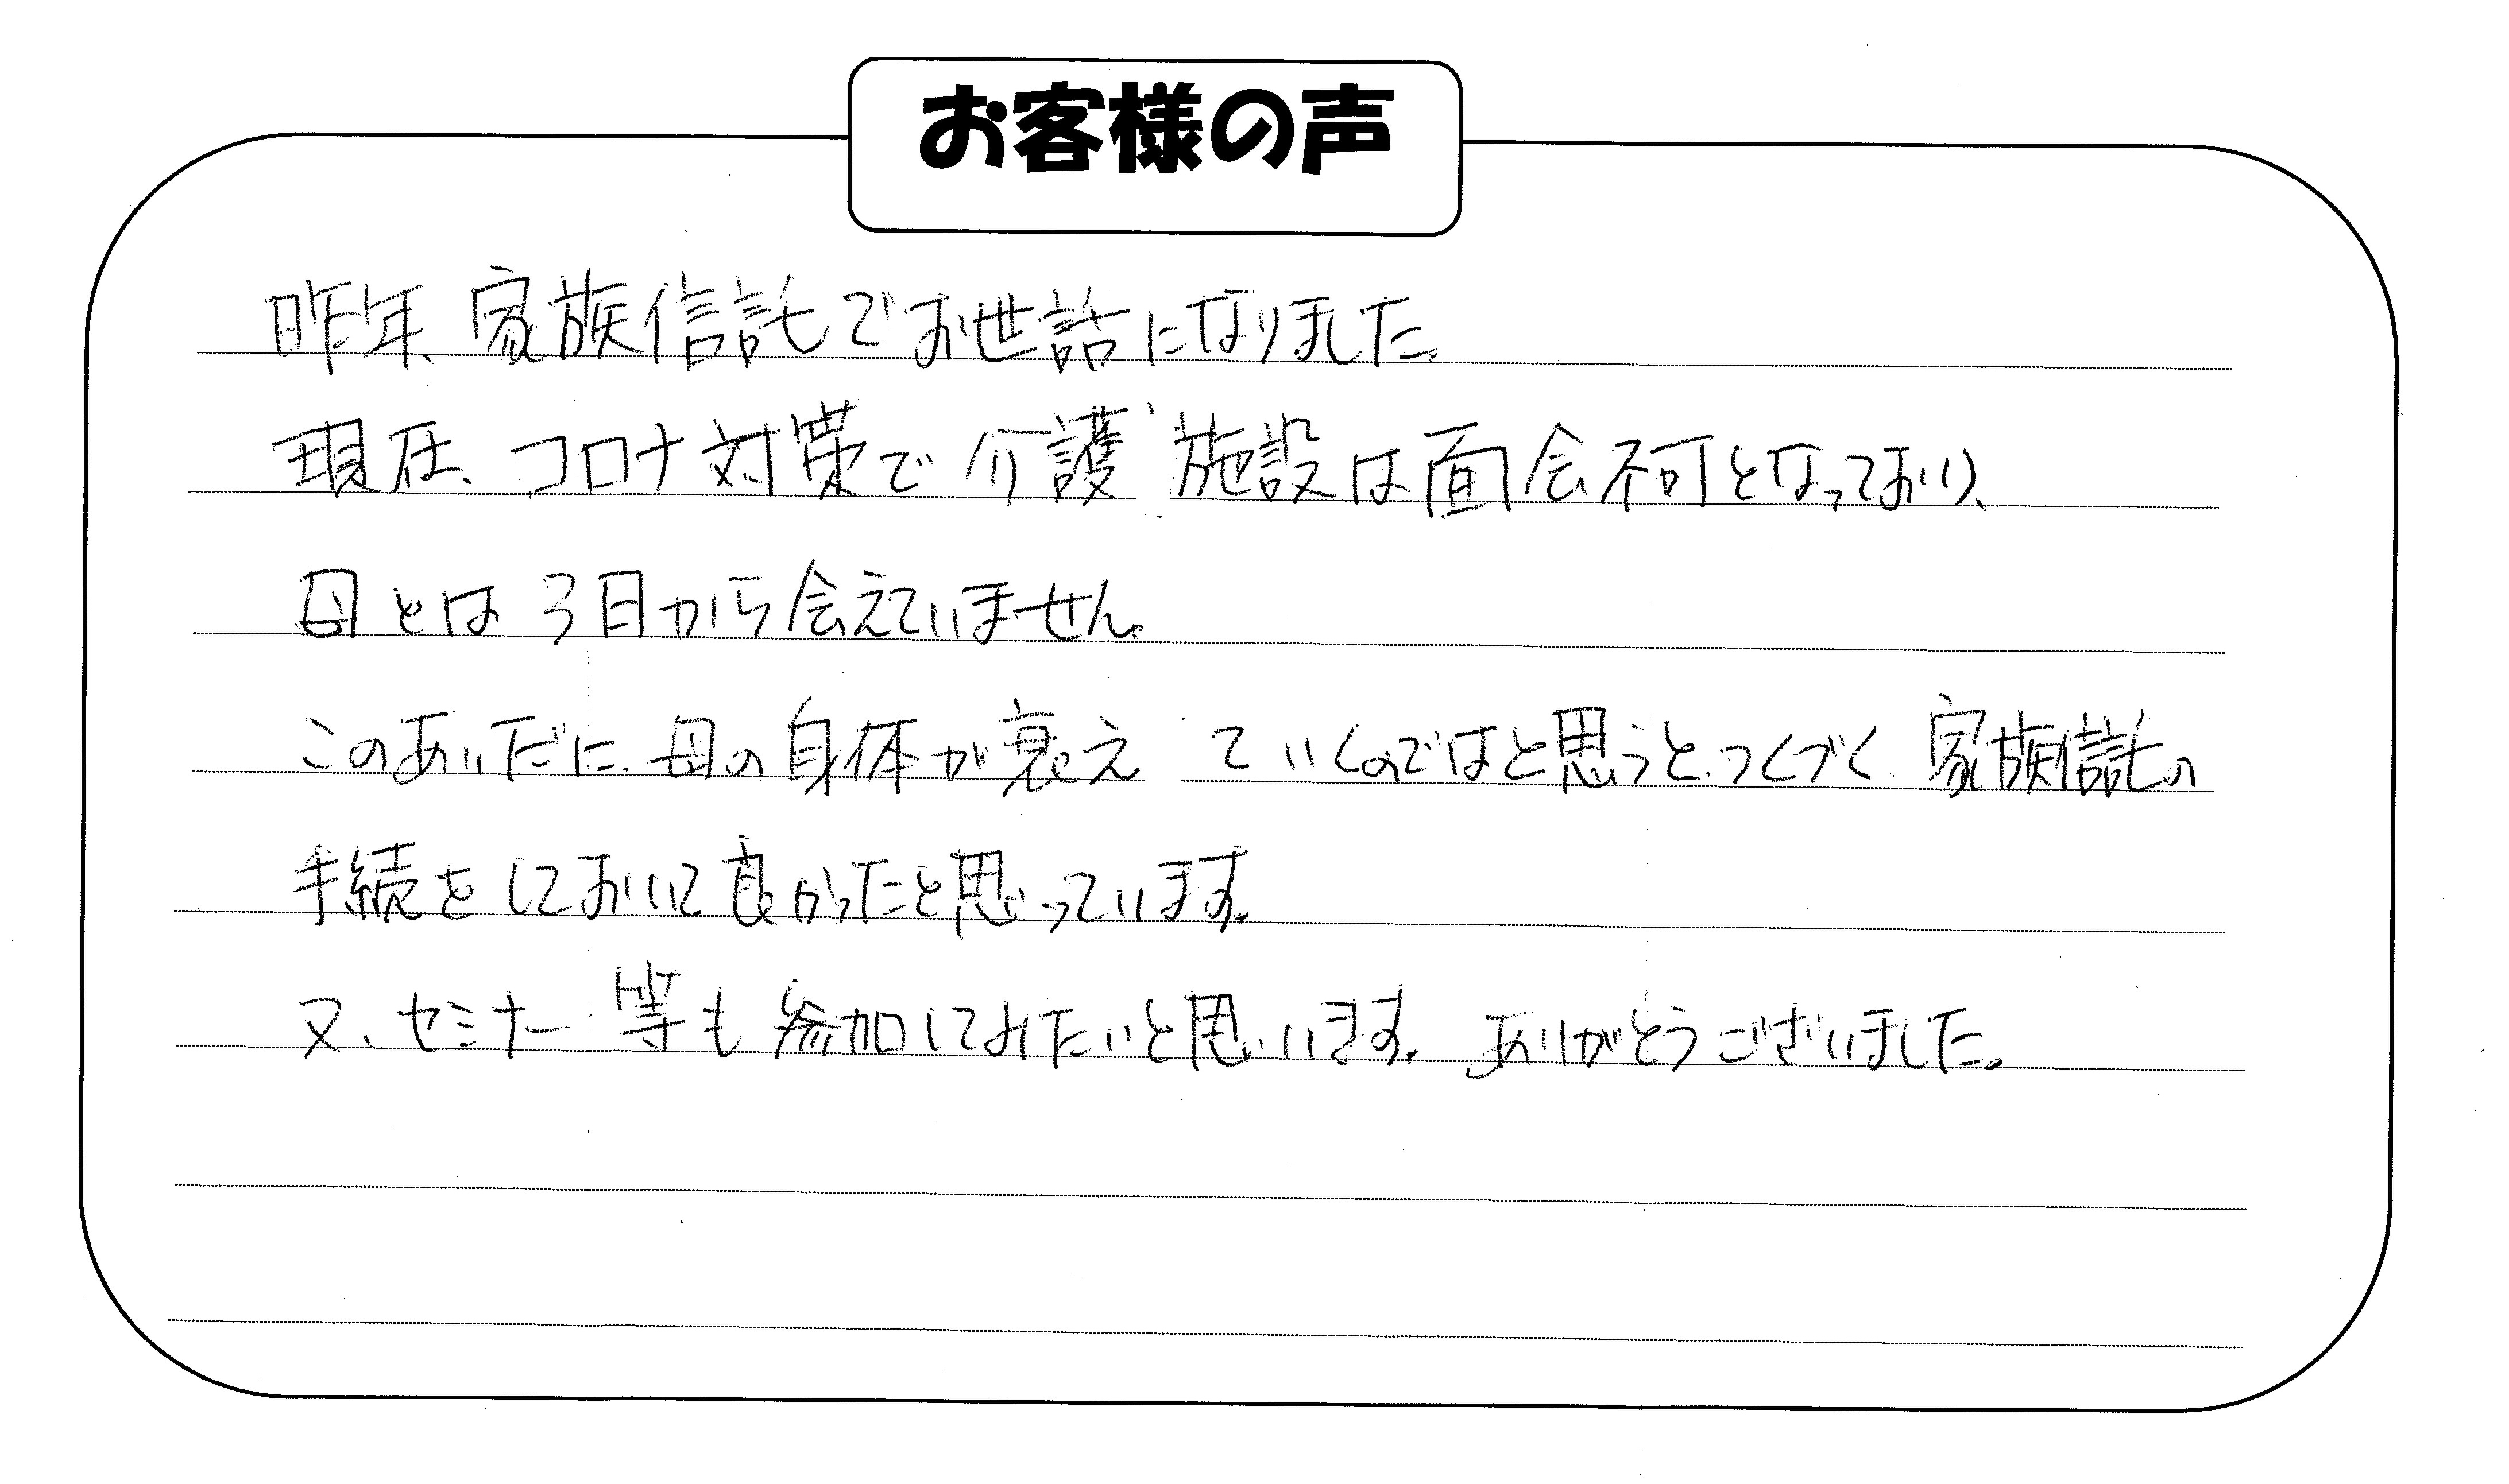 お客様の声
昨年、家族信託でお世話になりました。
現在、コロナ対策で介護施設は面会不可となっており、
母とは3月から会えていません。
このあいだに、母の身体が衰えていくのではと思うと、つくづく、家族信託の
手続をしておいて良かったと思っています。
又、セミナー等も参加してみたいと思います。ありがとうございました。